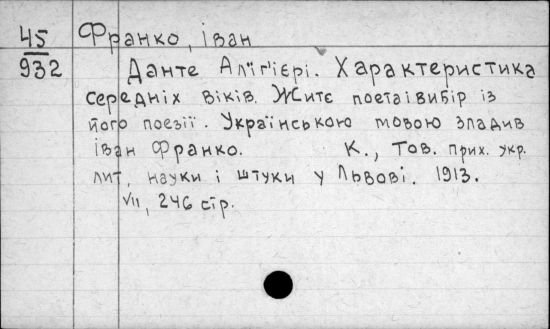 45
932
Франко, Іван
Данте Аліґ'ієрі. Характеристика
середніх віків. Житє поета і вибір із
його поезії. Українською мовою зладив
іван Франко. К., Тов. прих. укр.
лит, науки і штуки у Львові. 1913.
VII, 246 стр.